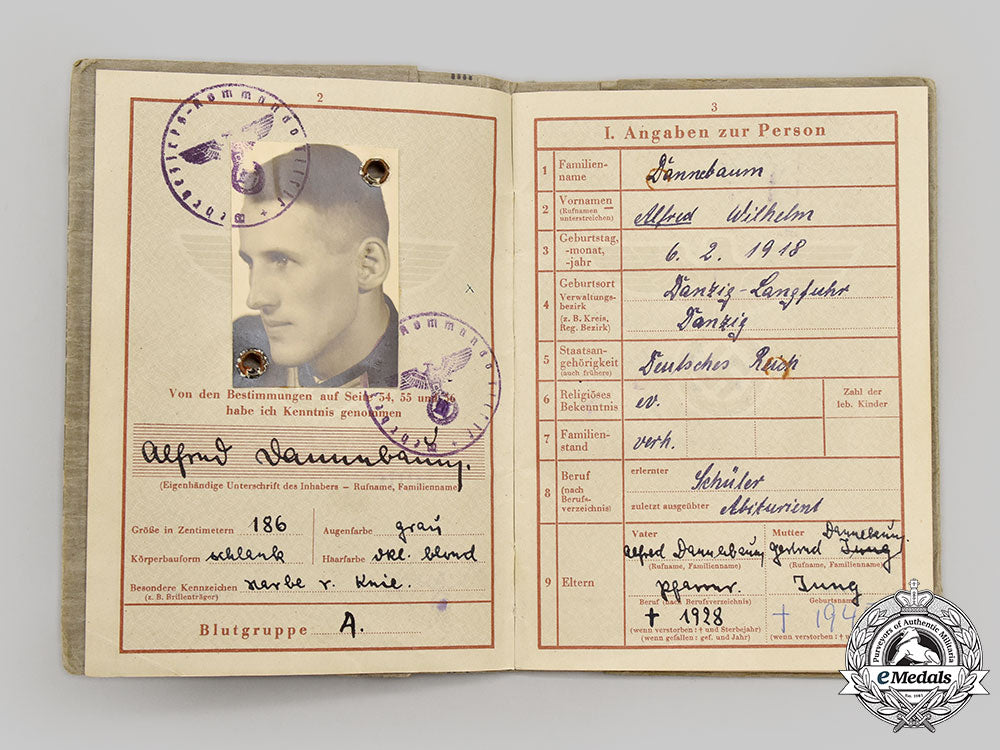 2
Wehrbezirks-Kommando
Von den Bestimmungen auf Seite 54, 55 und 56
habe ich Kenntnis genommen
Alfred Dannebaum.
(Eigenhändige Unterschrift des Inhabers – Rufname, Familienname)
Größe in Zentimetern 186 Augenfarbe grau
Körperbauform schlank Haarfarbe dkl. blond
Besondere Kennzeichen Narbe r. Knie.
(z. B. Brillenträger)
Blutgruppe A.
Wehrbezirks-Kommando
3
I. Angaben zur Person
1 Familien-
name Dannebaum
2 Vornamen
(Rufnamen
unterstreichen) Alfred Wilhelm
3 Geburtstag,
-monat,
-jahr 6. 2. 1918
4 Geburtsort
Verwaltungs-
bezirk
(z. B. Kreis,
Reg. Bezirk) Danzig-Langfuhr
Danzig
5 Staatsan-
gehörigkeit
(auch frühere) Deutsches Reich
6 Religiöses
Bekenntnis ev. Zahl der
leb. Kinder
7 Familien-
stand verh.
8 Beruf
(nach
Berufs-
verzeichnis) erlernter Schüler
zuletzt ausgeübter Abiturient
9 Eltern
Vater Mutter Dannebaum.
Alfred Dannebaum Gertrud Jung
(Rufname, Familienname) (Rufname, Familienname)
Pfarrer. Jung
Beruf (nach Berufsverzeichnis) Geburtsname
† 1928 † 194
(wenn verstorben: † und Sterbejahr) (wenn verstorben: †
(wenn gefallen: gef. und Jahr)
Purveyors of Authentic Militaria
eMedals